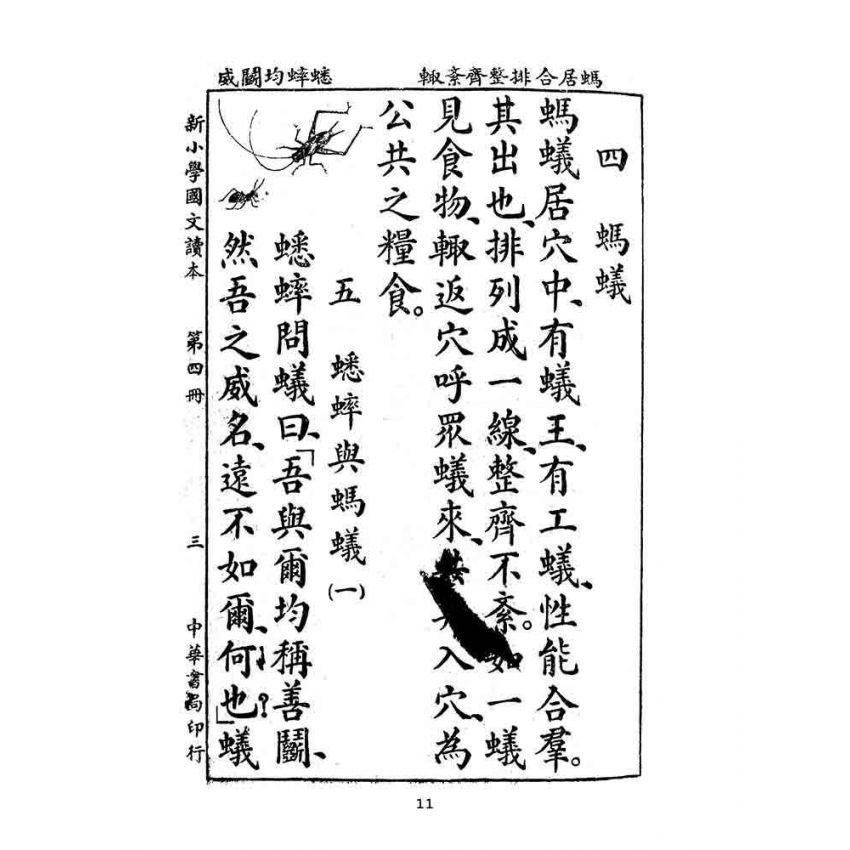 螞居合排整齊紊輙
蟋蟀均鬭威
四 螞蟻
螞蟻居穴中、有蟻王、有工蟻、性能合羣。
其出也、排列成一線、整齊不紊。如一蟻
見食物、輙返穴呼眾蟻來、入穴、為
公共之糧食。
五 蟋蟀與螞蟻(一)
蟋蟀問蟻曰、「吾與爾均稱善鬭、
然吾之威名、遠不如爾、何也?」蟻
新小學國文讀本 第四冊 三 中華書局印行
11